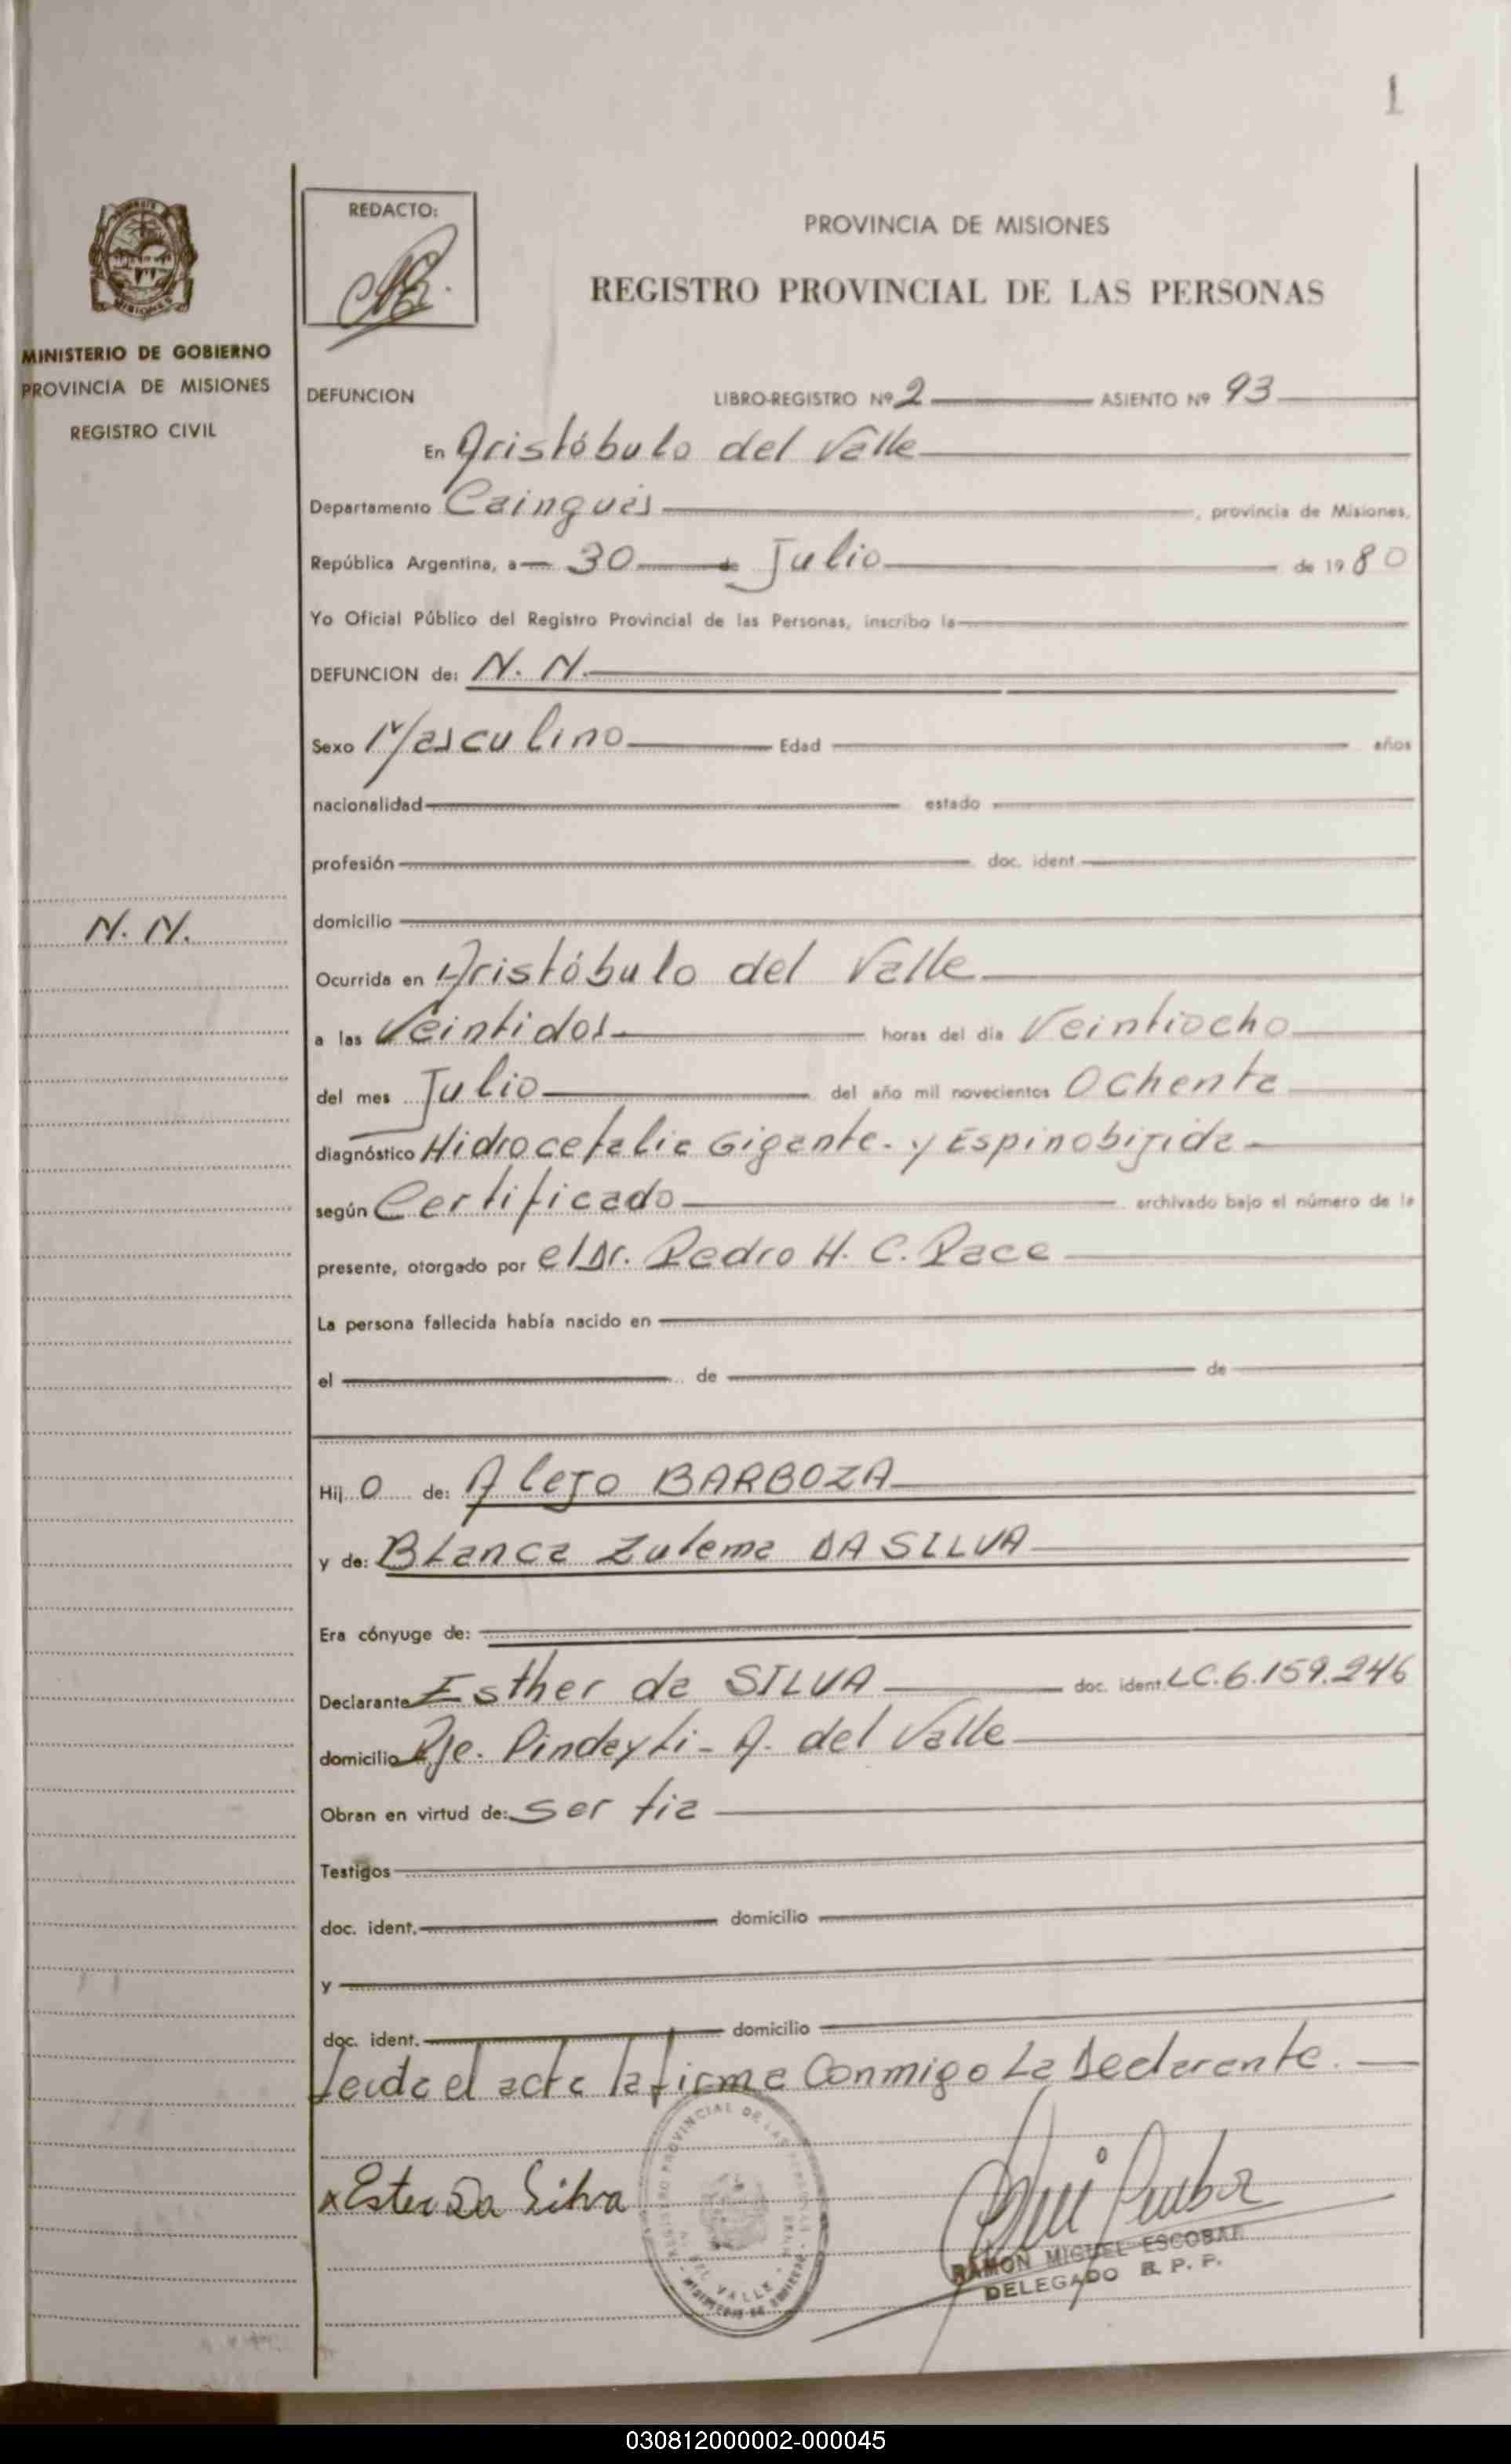 1
REDACTO:
PROVINCIA DE MISIONES
REGISTRO PROVINCIAL DE LAS PERSONAS
MINISTERIO DE GOBIERNO
PROVINCIA DE MISIONES
REGISTRO CIVIL
DEFUNCION LIBRO-REGISTRO Nº 2 ASIENTO Nº 93
En Aristóbulo del Valle
Departamento Cainguás, provincia de Misiones,
República Argentina, a 30 de Julio de 1980
Yo Oficial Público del Registro Provincial de las Personas, inscribo la
DEFUNCION de: N. N.
Sexo Masculino Edad años
nacionalidad estado
profesión doc. ident.
N. N.
domicilio
Ocurrida en Aristóbulo del Valle
a las Veintidos horas del día Veintiocho
del mes Julio del año mil novecientos Ochenta
diagnóstico Hidrocefalia Gigante - y Espinobifida
según Certificado archivado bajo el número de la
presente, otorgado por el Dr. Pedro H. C. Pace
La persona fallecida había nacido en
el de de
Hij o de: Alejo BARBOZA
y de: Blanca Zulema DA SILVA
Era cónyuge de:
Declarante Esther da SILVA doc. ident. LC. 6.159.246
domicilio Pje. Pindayti - A. del Valle
Obran en virtud de: ser tia
Testigos
doc. ident. domicilio
y
doc. ident. domicilio
Leida el acta la firma Conmigo La Declarante.
x Ester Da Silva
RAMON MIGUEL ESCOBAR
DELEGADO R. P. P.
030812000002-000045